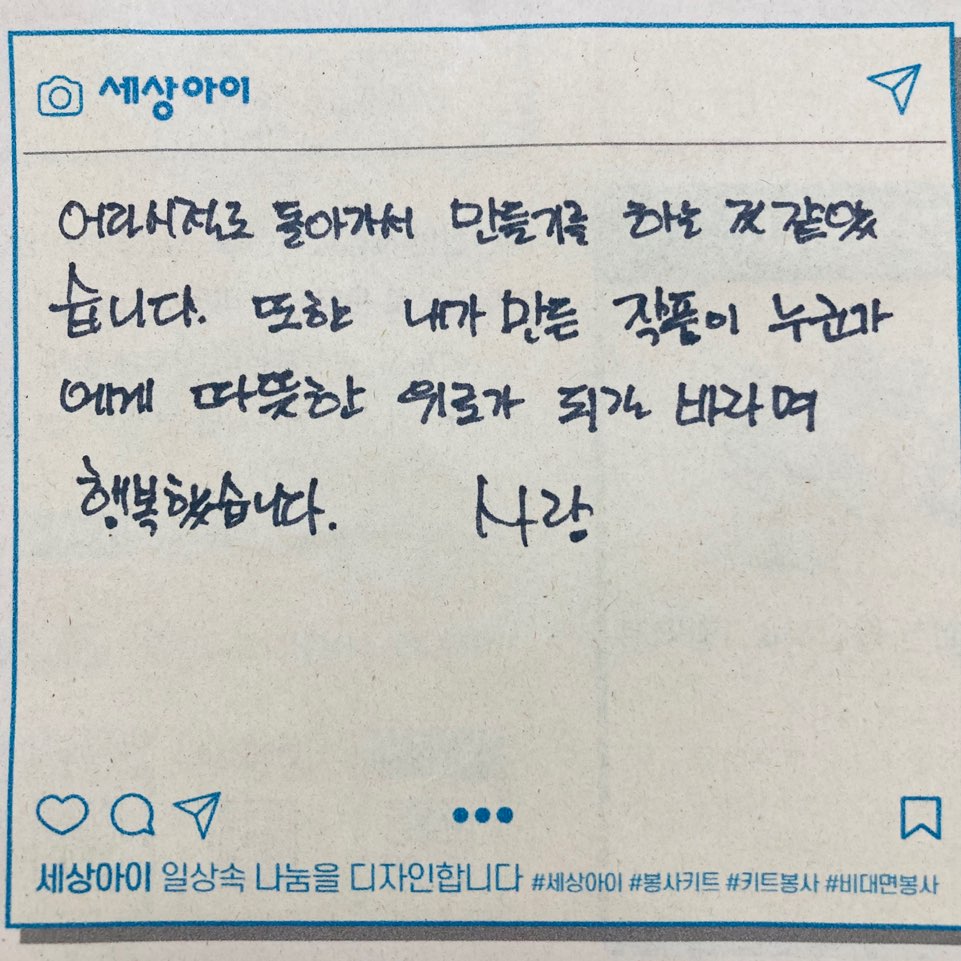 세상아이
어린시절로 돌아가서 만들기를 하는 것 같았
습니다. 또한 내가 만든 작품이 누군가
에게 따뜻한 위로가 되길 바라며
행복했습니다. 사랑
세상아이 일상속 나눔을 디자인합니다 #세상아이 #봉사키트 #키트봉사 #비대면봉사